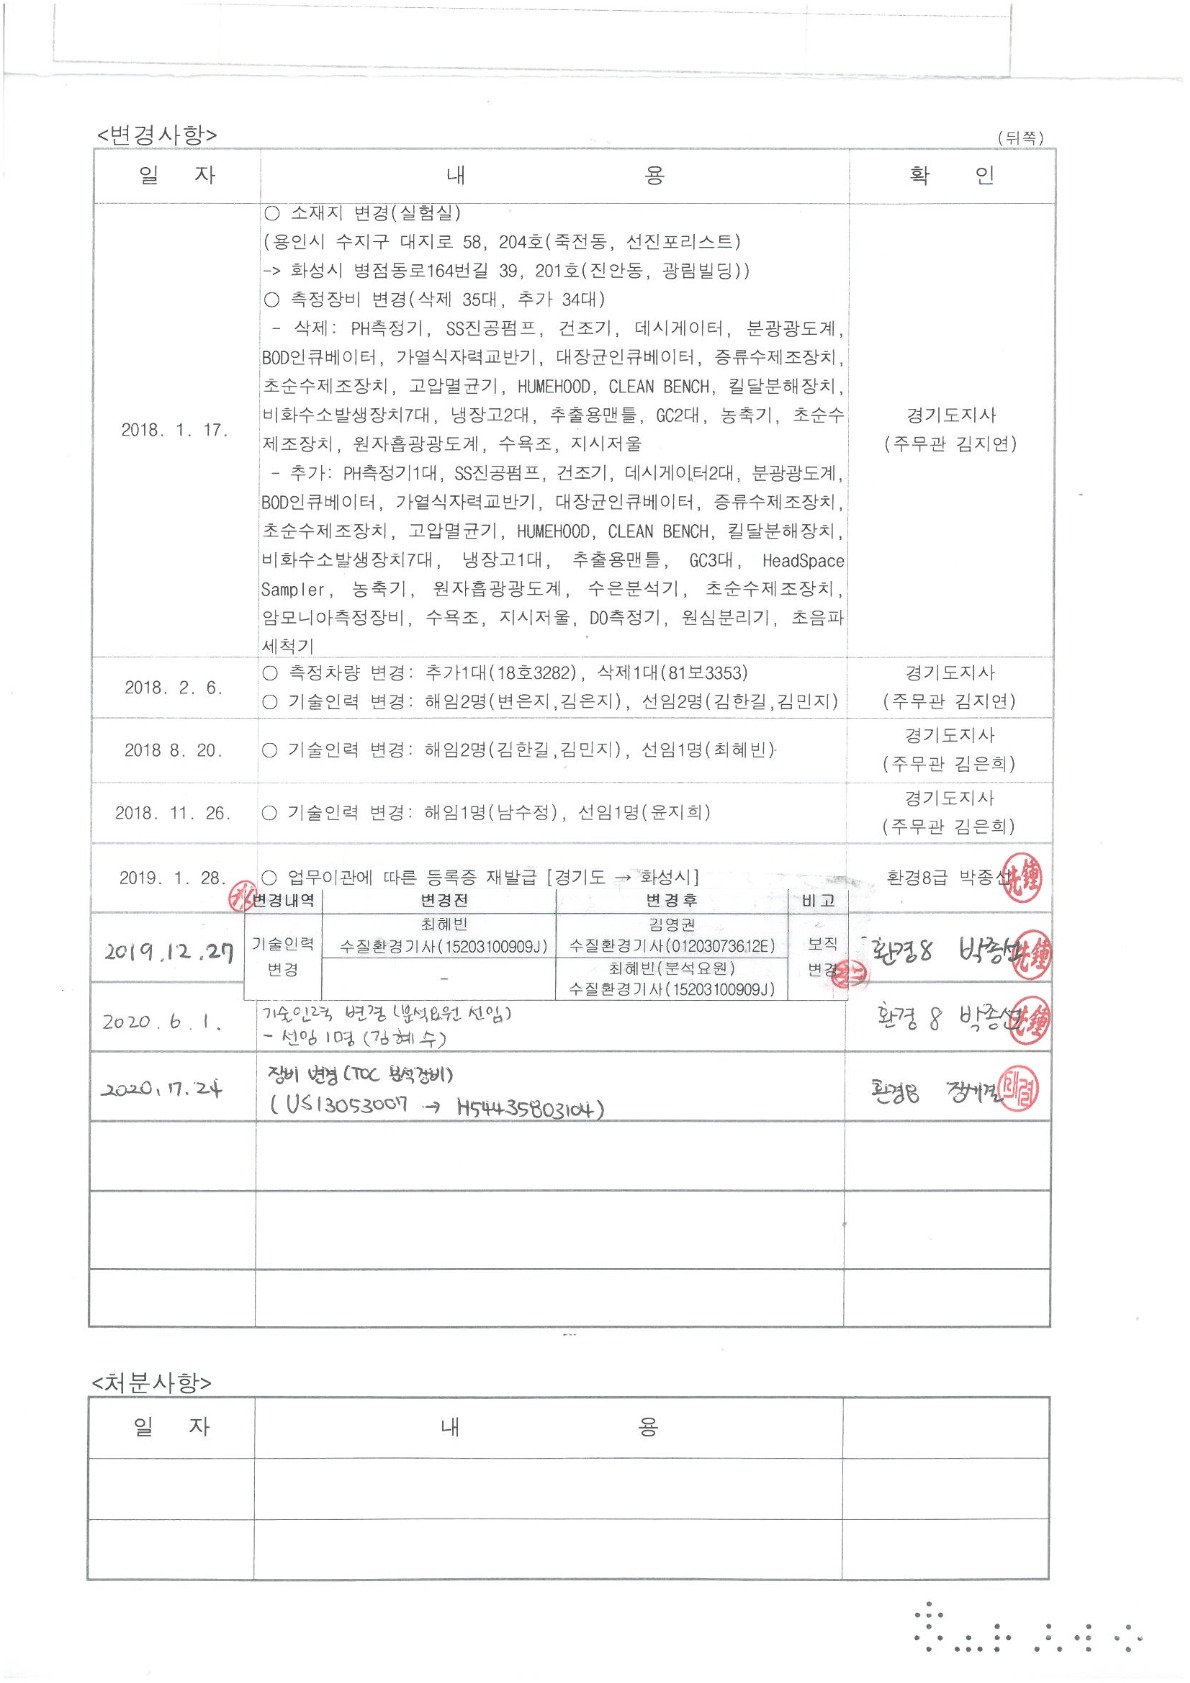 <변경사항>
(뒤쪽)
일 자 내 용 확 인
○ 소재지 변경(실험실)
(용인시 수지구 대지로 58, 204호(죽전동, 선진포리스트)
-> 화성시 병점동로164번길 39, 201호(진안동, 광림빌딩))
○ 측정장비 변경(삭제 35대, 추가 34대)
- 삭제: PH측정기, SS진공펌프, 건조기, 데시게이터, 분광광도계,
BOD인큐베이터, 가열식자력교반기, 대장균인큐베이터, 증류수제조장치,
초순수제조장치, 고압멸균기, HUMEHOOD, CLEAN BENCH, 킬달분해장치,
비화수소발생장치7대, 냉장고2대, 추출용맨틀, GC2대, 농축기, 초순수
제조장치, 원자흡광광도계, 수욕조, 지시저울
2018. 1. 17.
경기도지사
(주무관 김지연)
- 추가: PH측정기1대, SS진공펌프, 건조기, 데시게이터2대, 분광광도계,
BOD인큐베이터, 가열식자력교반기, 대장균인큐베이터, 증류수제조장치,
초순수제조장치, 고압멸균기, HUMEHOOD, CLEAN BENCH, 킬달분해장치,
비화수소발생장치7대, 냉장고1대, 추출용맨틀, GC3대, HeadSpace
Sampler, 농축기, 원자흡광광도계, 수은분석기, 초순수제조장치,
암모니아측정장비, 수욕조, 지시저울, DO측정기, 원심분리기, 초음파
세척기
2018. 2. 6.
○ 측정차량 변경: 추가1대(18호3282), 삭제1대(81보3353)
○ 기술인력 변경: 해임2명(변은지,김은지), 선임2명(김한길,김민지)
경기도지사
(주무관 김지연)
2018 8. 20.
○ 기술인력 변경: 해임2명(김한길,김민지), 선임1명(최혜빈)
경기도지사
(주무관 김은희)
2018. 11. 26.
○ 기술인력 변경: 해임1명(남수정), 선임1명(윤지희)
경기도지사
(주무관 김은희)
2019. 1. 28.
○ 업무이관에 따른 등록증 재발급 [경기도 → 화성시]
환경8급 박종선
변경내역 변경전 변경후 비고
2019.12.27
기술인력
변경
최혜빈
수질환경기사(15203100909J)
-
김영권
수질환경기사(01203073612E)
최혜빈(분석요원)
수질환경기사(15203100909J)
보직
변경
환경8 박종선
2020.6.1.
기술인력 변경 (분석요원 선임)
- 선임 1명 (김혜수)
환경 8 박종선
장비 변경(TOC 분석장비)
(US13053007 → H54435803104)
환경8
<처분사항>
일 자 내 용